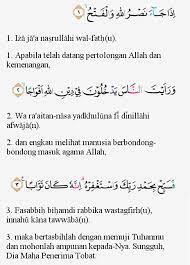 إِذَا جَآءَ نَصْرُ اللهِ وَالْفَتْحُ ١
1. Iżā jā'a naṣrullāhi wal-fatḥ(u).
1. Apabila telah datang pertolongan Allah dan
kemenangan,
وَرَاَيْتَ النَّاسَ يَدْخُلُوْنَ فِيْ دِيْنِ اللهِ اَفْوَاجًا ٢
2. Wa ra'aitan-nāsa yadkhulūna fī dīnillāhi
afwājā(n).
2. dan engkau melihat manusia berbondong-
bondong masuk agama Allah,
فَسَبِّحْ بِحَمْدِ رَبِّكَ وَاسْتَغْفِرْهُ اِنَّهٗ كَانَ تَوَّابًا ٣
3. Fasabbiḥ biḥamdi rabbika wastagfirh(u),
innahū kāna tawwābā(n).
3. maka bertasbihlah dengan memuji Tuhanmu
dan mohonlah ampunan kepada-Nya. Sungguh,
Dia Maha Penerima Tobat.